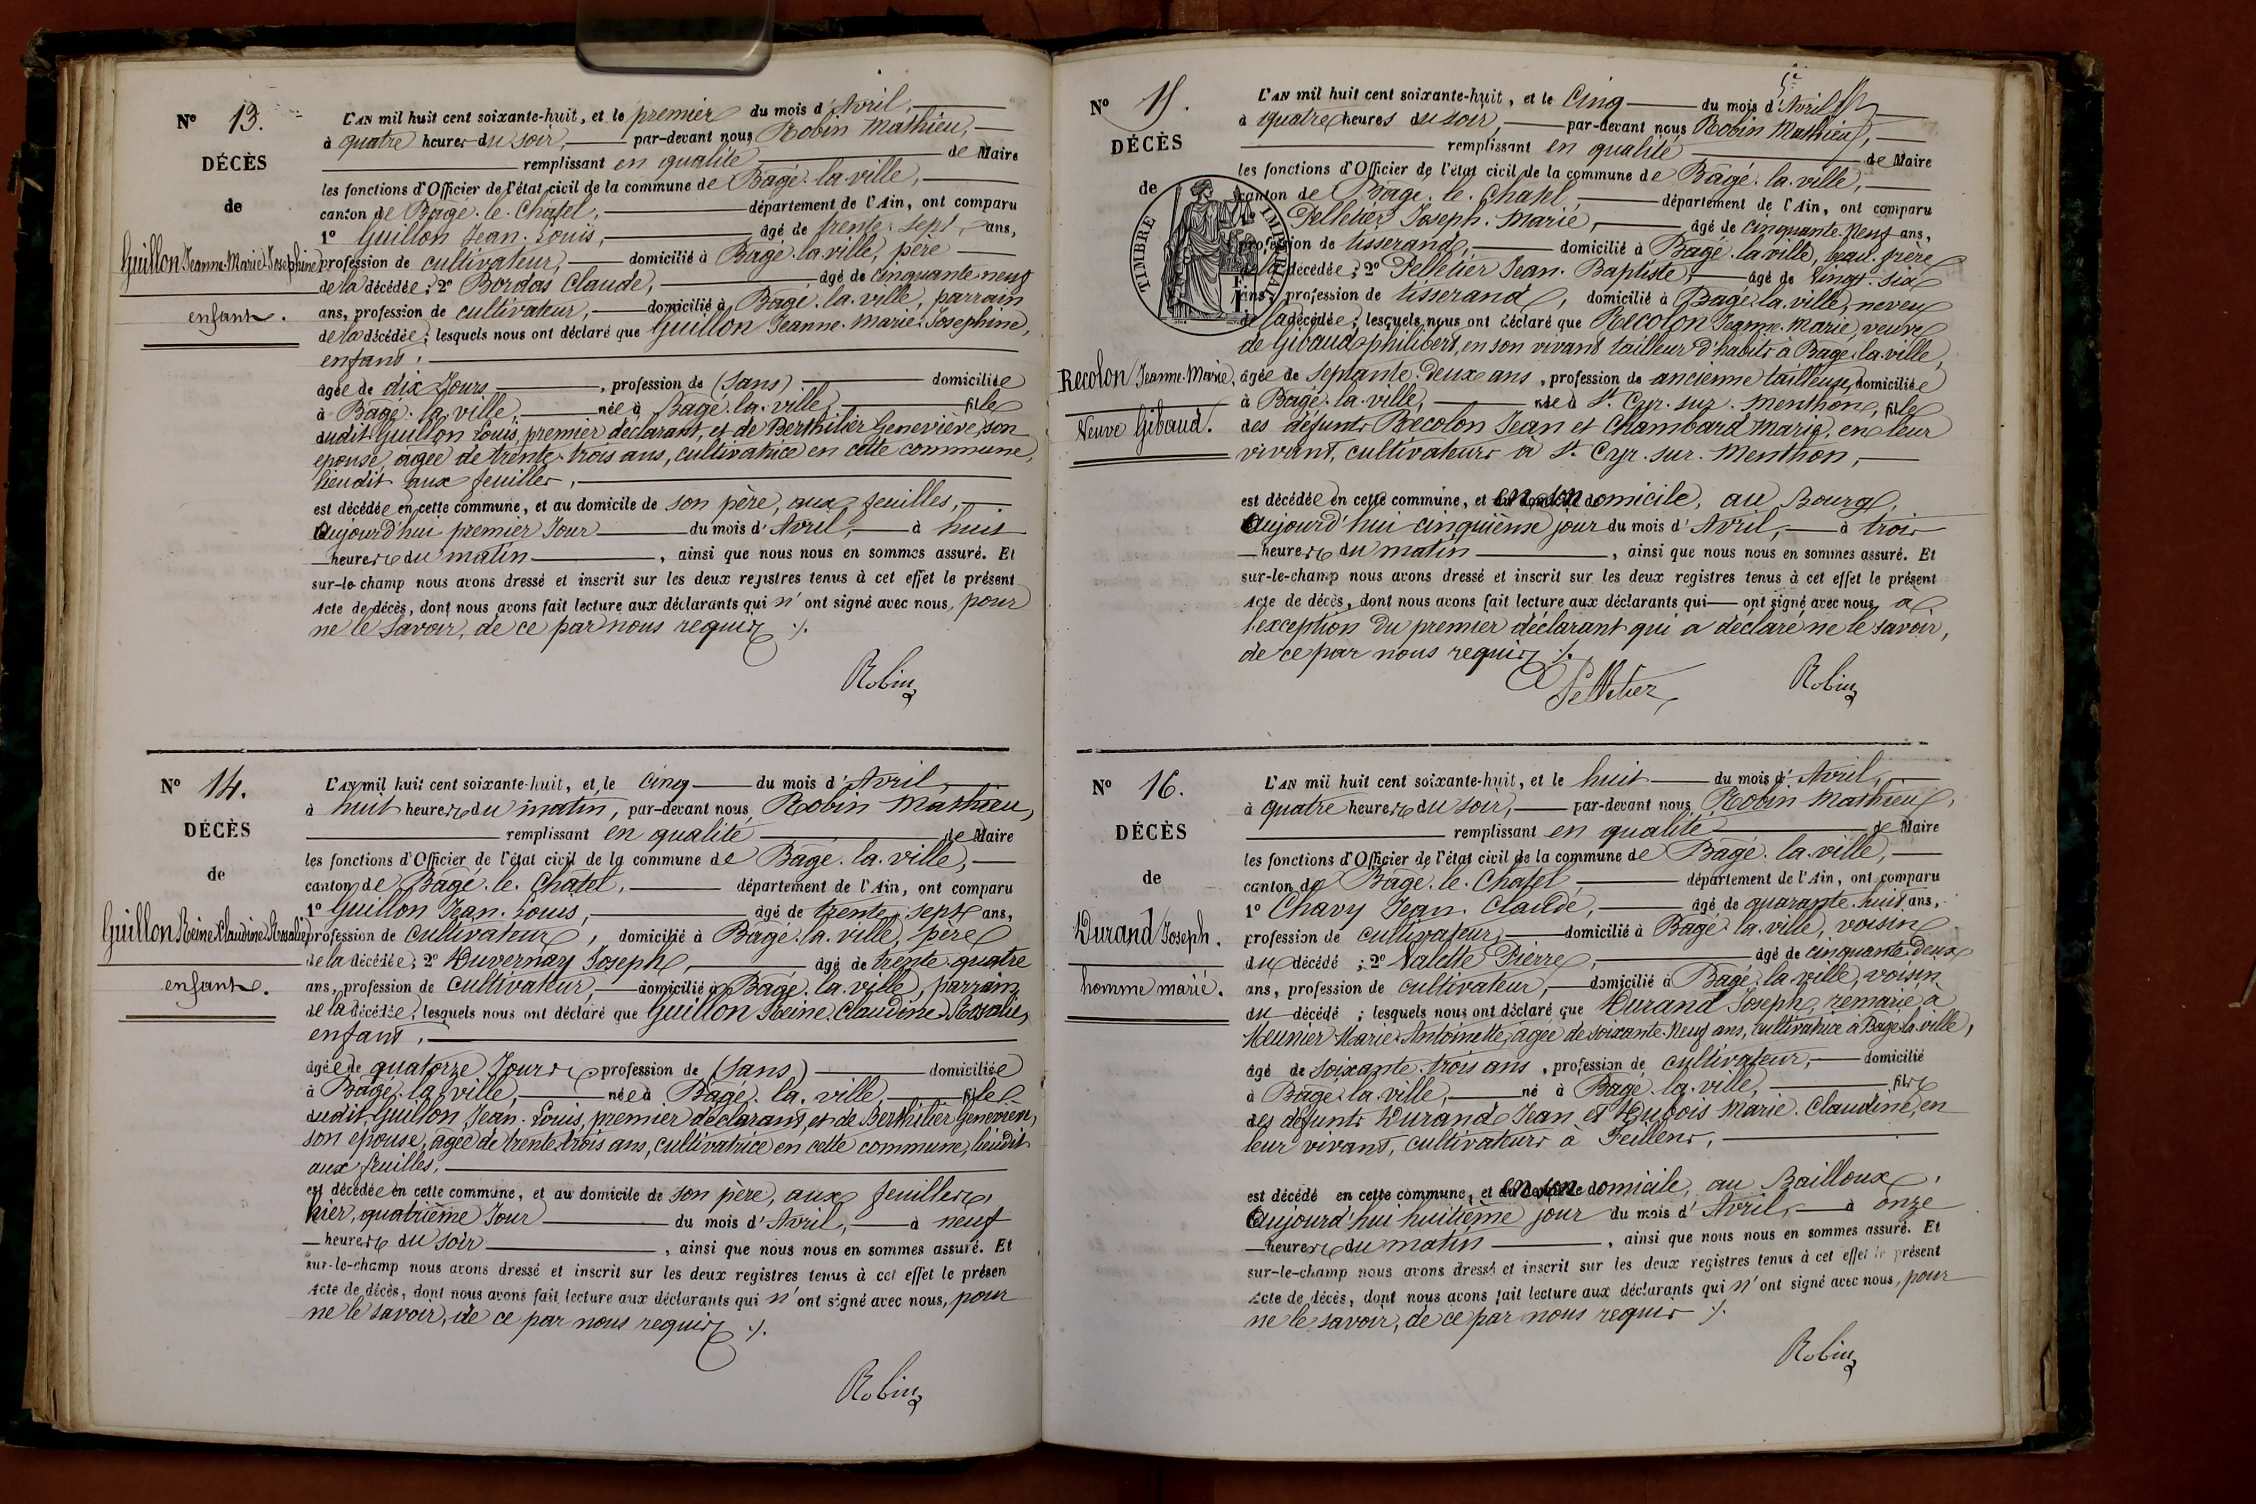 Nº 13.
DÉCÈS
de
Guillon Jeanne-Marie-Josephine
enfant.
L'AN mil huit cent soixante-huit, et le premier du mois d'Avril,
à quatre heures du soir, par-devant nous Robin Mathieu,
remplissant en qualité de Maire
les fonctions d'Officier de l'état civil de la commune de Bâgé-la-ville,
canton de Bâgé-le-Châtel, département de l'Ain, ont comparu
1º Guillon Jean-Louis, âgé de trente-sept ans,
profession de cultivateur, domicilié à Bâgé-la-ville, père
de la décédée; 2º Bordas Claude, âgé de cinquante-neuf
ans, profession de cultivateur, domicilié à Bâgé-la-ville, parrain
de la décédée; lesquels nous ont déclaré que Guillon Jeanne-Marie-Josephine,
enfant,
âgée de dix Jours, profession de (Sans) domiciliée
à Bâgé-la-ville, née à Bâgé-la-ville, fille
dudit Guillon Louis, premier déclarant, et de Berthilier Geneviève, son
épouse, agée de trente-trois ans, cultivatrice en cette commune,
lieudit aux feuilles,
est décédée en cette commune, et au domicile de son père, aux feuilles,
Aujourd'hui premier Jour du mois d'Avril, à huit
heures du matin, ainsi que nous nous en sommes assuré. Et
sur-le-champ nous avons dressé et inscrit sur les deux registres tenus à cet effet le présent
Acte de décès, dont nous avons fait lecture aux déclarants qui n'ont signé avec nous, pour
ne le savoir, de ce par nous requis ./.
Robin
Nº 14.
DÉCÈS
de
Guillon Reine-Claudine-Rosalie
enfant.
L'AN mil huit cent soixante-huit, et le cinq du mois d'Avril,
à huit heures du matin, par-devant nous Robin Mathieu,
remplissant en qualité de Maire
les fonctions d'Officier de l'état civil de la commune de Bâgé-la-ville,
canton de Bâgé-le-Châtel, département de l'Ain, ont comparu
1º Guillon Jean-Louis, âgé de trente-sept ans,
profession de cultivateur, domicilié à Bâgé-la-ville, père
de la décédée; 2º Duvernay Joseph, âgé de trente-quatre
ans, profession de cultivateur, domicilié à Bâgé-la-ville, parrain
de la décédée, lesquels nous ont déclaré que Guillon Reine-Claudine-Rosalie,
enfant,
âgée de quatorze Jours, profession de (Sans) domiciliée
à Bâgé-la-ville, née à Bâgé-la-ville, fille
dudit Guillon Jean-Louis, premier déclarant, et de Berthilier Geneviève,
son épouse, agée de trente-trois ans, cultivatrice en cette commune, lieudit
aux feuilles,
est décédée en cette commune, et au domicile de son père, aux feuilles,
hier, quatrième Jour du mois d'Avril, à neuf
heures du soir, ainsi que nous nous en sommes assuré. Et
sur-le-champ nous avons dressé et inscrit sur les deux registres tenus à cet effet le présen
Acte de décès, dont nous avons fait lecture aux déclarants qui n'ont signé avec nous, pour
ne le savoir, de ce par nous requis ./.
Robin
Nº 15.
DÉCÈS
de
TIMBRE IMPÉRIAL
Recolon Jeanne-Marie,
Veuve Gibaud.
L'AN mil huit cent soixante-huit, et le Cinq du mois d'Avril
à quatre heures du soir, par-devant nous Robin Mathieu,
remplissant en qualité de Maire
les fonctions d'Officier de l'état civil de la commune de Bâgé-la-ville,
canton de Bâgé-le-Chatel, département de l'Ain, ont comparu
Pelletier Joseph-Marie, âgé de cinquante-neuf ans,
profession de tisserand, domicilié à Bâgé-la-ville, beau-frère
de la décédée; 2º Pelletier Jean-Baptiste, âgé de vingt-six
ans, profession de tisserand, domicilié à Bâgé-la-ville, neveu
de la décédée; lesquels nous ont déclaré que Recolon Jeanne-Marie, veuve
de Gibaud philibert, en son vivant tailleur d'habits à Bâgé-la-ville,
âgée de septante-deux ans, profession de ancienne tailleuse, domiciliée
à Bâgé-la-ville, née à St-Cyr-sur-Menthon, fille
des défunts Recolon Jean et Chambard Marie, en leur
vivant, cultivateurs à St-Cyr-sur-Menthon,
est décédée en cette commune, et en son domicile, au Bourg,
Aujourd'hui cinquième jour du mois d'Avril, à trois
heures du matin, ainsi que nous nous en sommes assuré. Et
sur-le-champ nous avons dressé et inscrit sur les deux registres tenus à cet effet le présent
Acte de décès, dont nous avons fait lecture aux déclarants qui ont signé avec nous, à
l'exception du premier déclarant qui a déclaré ne le savoir,
de ce par nous requis ./.
Pelletier Robin
Nº 16.
DÉCÈS
de
Durand Joseph.
homme marié.
L'AN mil huit cent soixante-huit, et le huit du mois d'Avril,
à quatre heures du soir, par-devant nous Robin Mathieu,
remplissant en qualité de Maire
les fonctions d'Officier de l'état civil de la commune de Bâgé-la-ville,
canton de Bâgé-le-Chatel, département de l'Ain, ont comparu
1º Chavy Jean-Claude, âgé de quarante-huit ans,
profession de cultivateur, domicilié à Bâgé-la-ville, voisin
du décédé; 2º Valette Pierre, âgé de cinquante-deux
ans, profession de cultivateur, domicilié à Bâgé-la-ville, voisin
du décédé; lesquels nous ont déclaré que Durand Joseph, remarié à
Meunier Marie-Antoinette, agée de soixante-neuf ans, cultivatrice à Bâgé-la-ville,
âgé de soixante-trois ans, profession de cultivateur, domicilié
à Bâgé-la-ville, né à Bâgé-la-ville, fils
des défunts Durand Jean et Dubois Marie-Claudine, en
leur vivant, cultivateurs à Feillens,
est décédé en cette commune, et en son domicile, au Bailloux,
Aujourd'hui huitième jour du mois d'Avril, à onze
heures du matin, ainsi que nous nous en sommes assuré. Et
sur-le-champ nous avons dressé et inscrit sur les deux registres tenus à cet effet le présent
Acte de décès, dont nous avons fait lecture aux déclarants qui n'ont signé avec nous, pour
ne le savoir, de ce par nous requis ./.
Robin